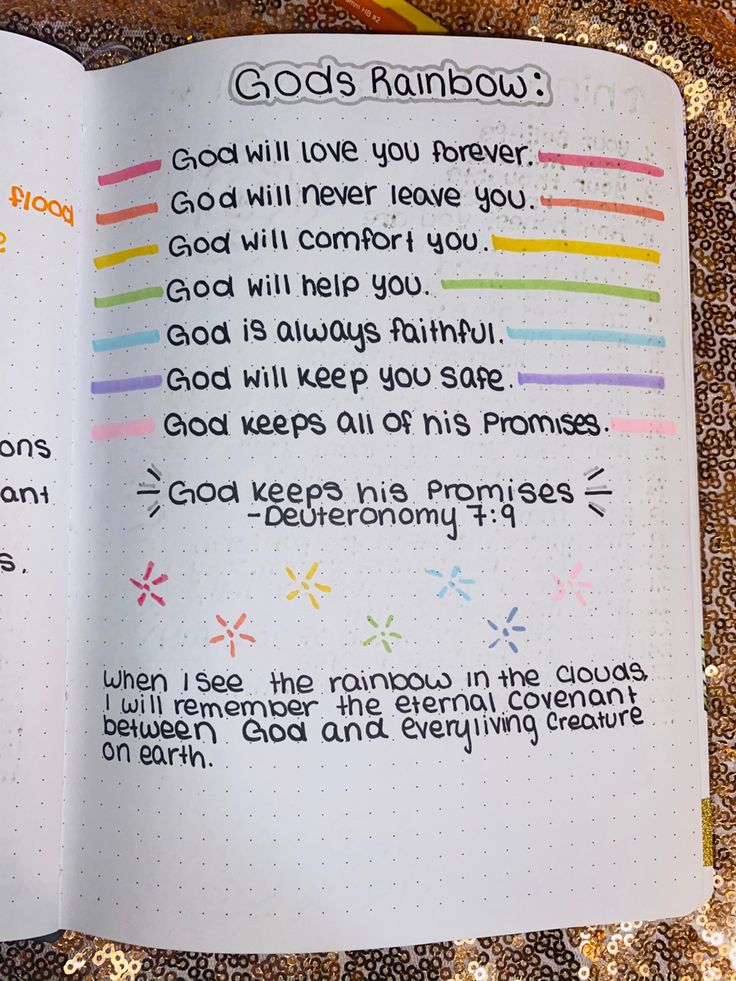 mm HB #2
Gods Rainbow:
flood
God will love you forever.
God will never leave you.
God will comfort you.
God will help you.
God is always faithful.
God will keep you safe.
God keeps all of his Promises.
ons
ant
s.
God keeps his Promises
-Deuteronomy 7:9
When I see the rainbow in the clouds,
I will remember the eternal covenant
between God and every living Creature
on earth.